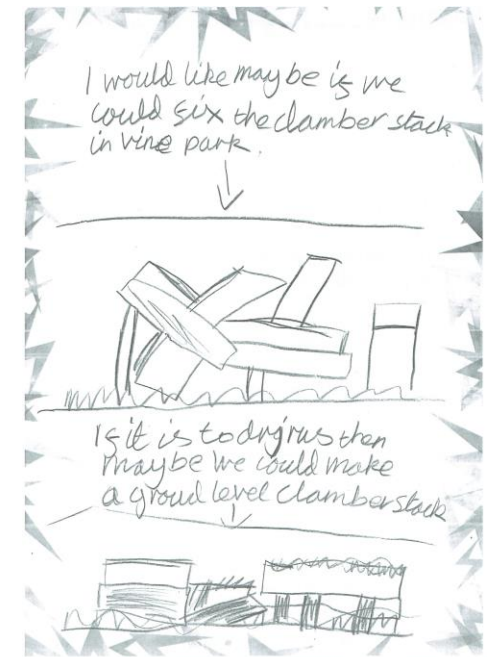 I would like maybe is we
could six the clamber stack
in vine park.
Is it is to drgrus then
maybe we could make
a groud level clamber stack